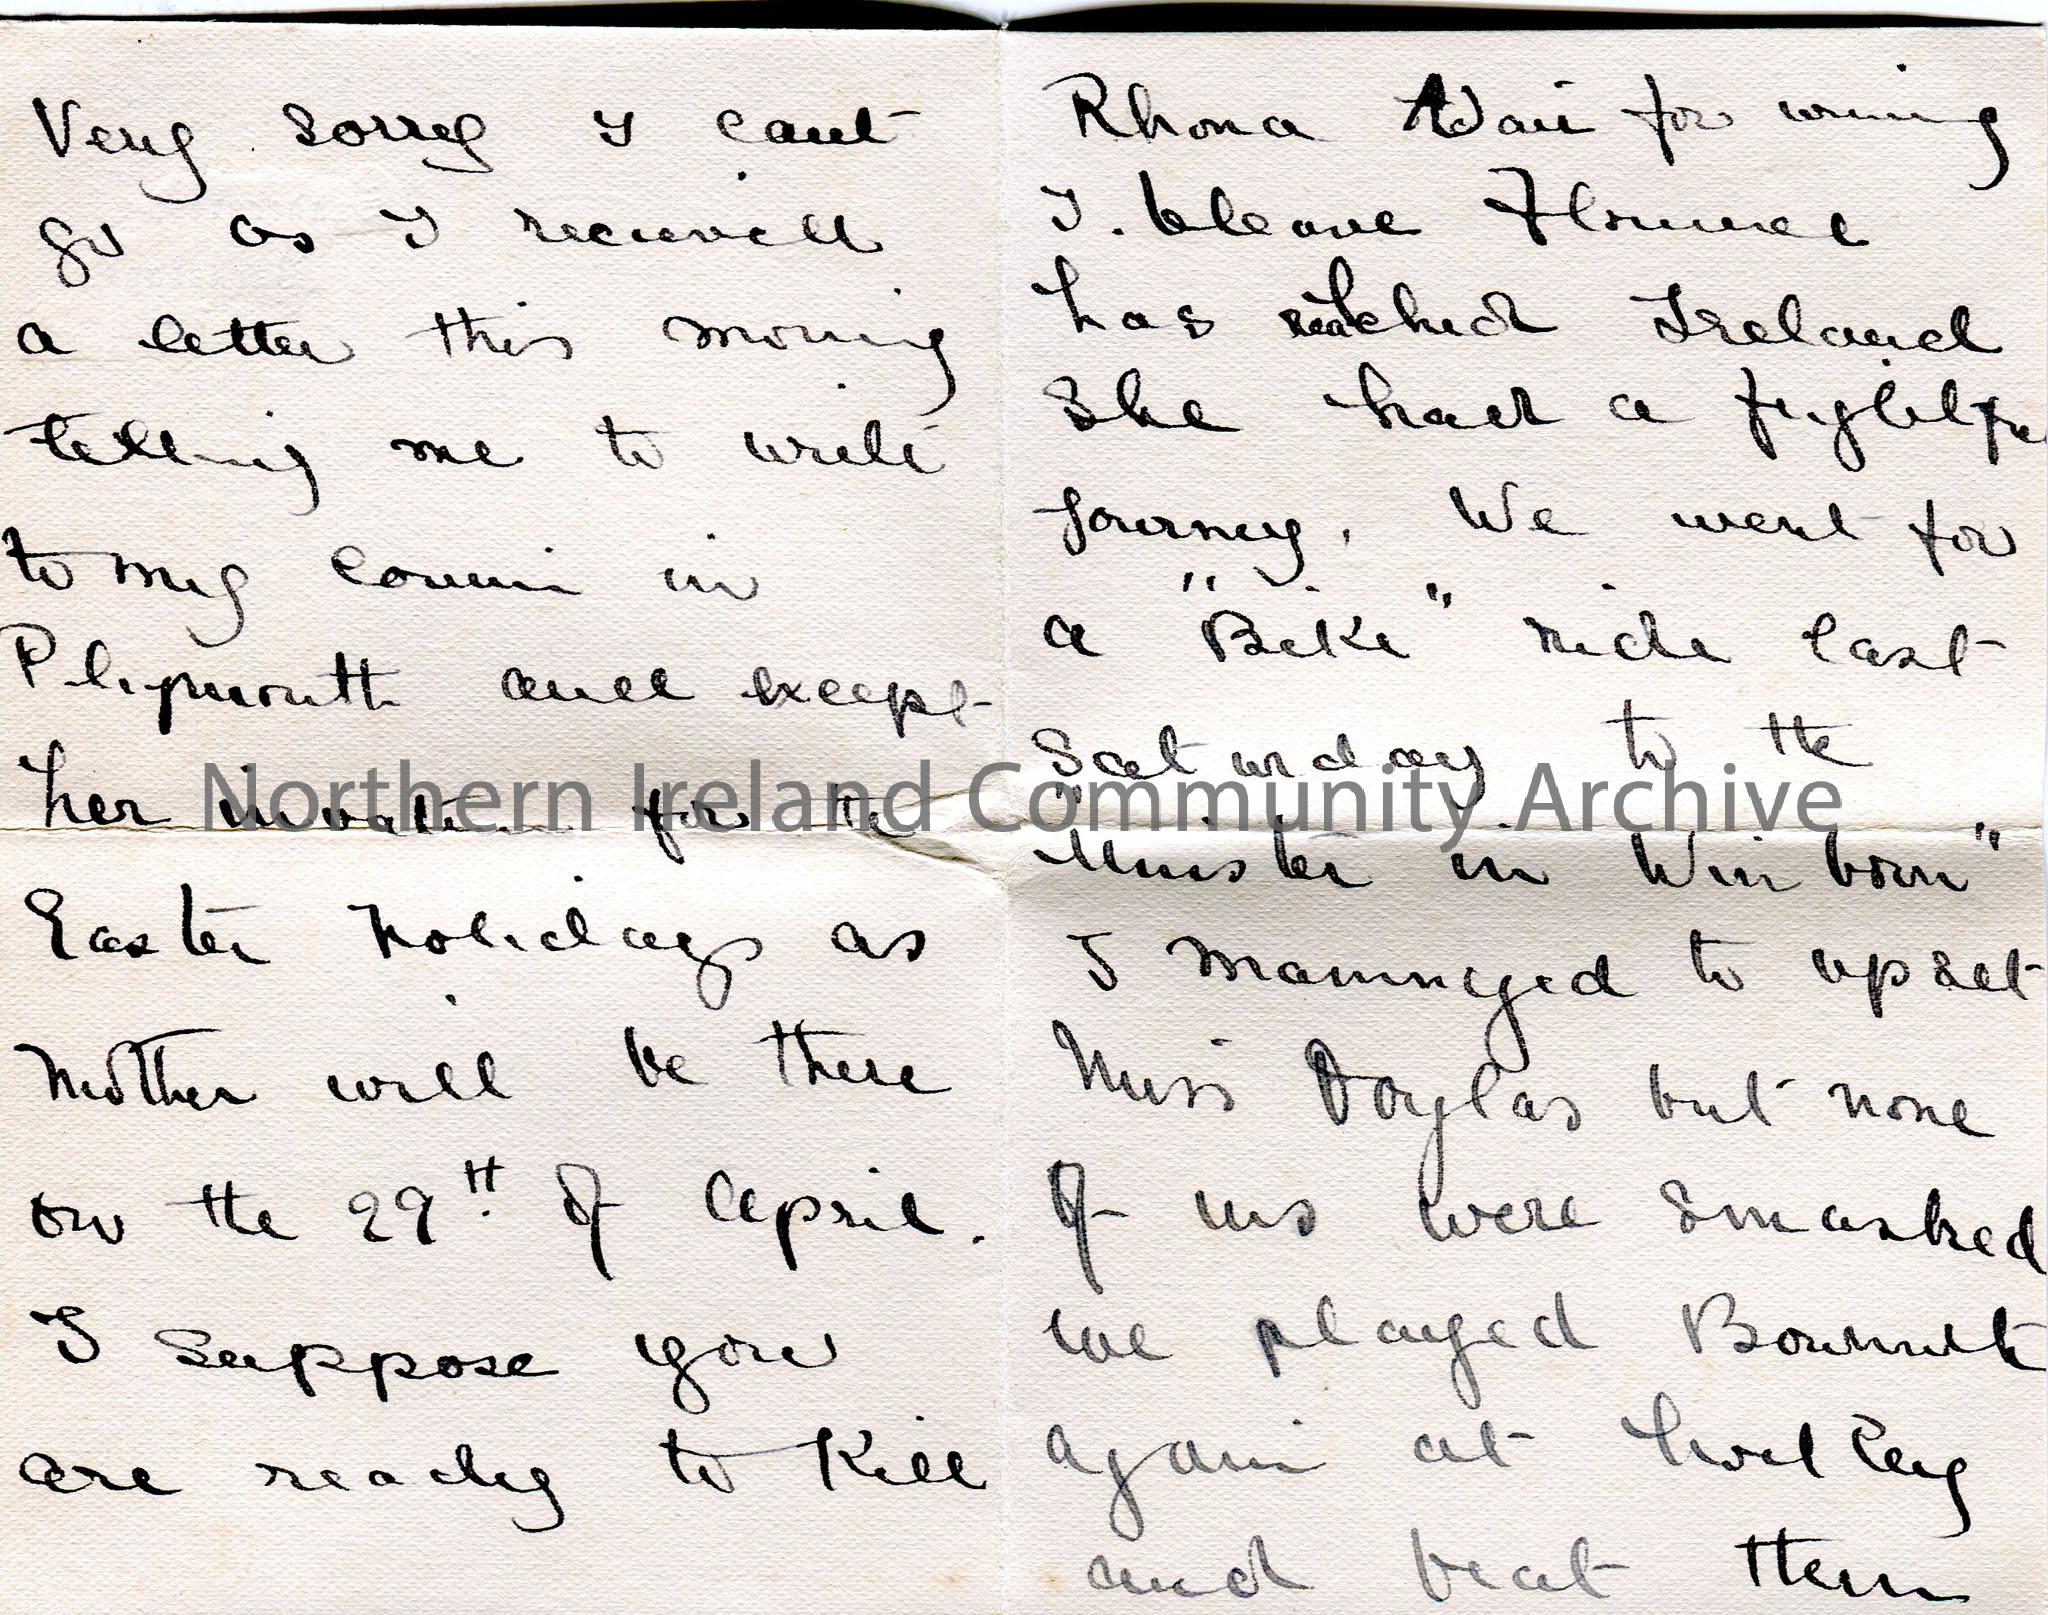 Very sorry I cant
go as I recieved
a letter this morning
telling me to write
to my cousin in
Plymouth and except
her invation for the
Easter Holidays as
Mother will be there
on the 29th of April.
I suppose you
are ready to Kill
Rhona Adair for wining
I bleave Florence
has reached Ireland
She had a frightful
Journey. We went for
a "Bike" ride last
Saturday to the
"Minster in Winborn"
I mannyed to upset
Miss Douglas but none
of us were smashed
we played Bournmth
again at Hockey
and beat them
Northern Ireland Community Archive